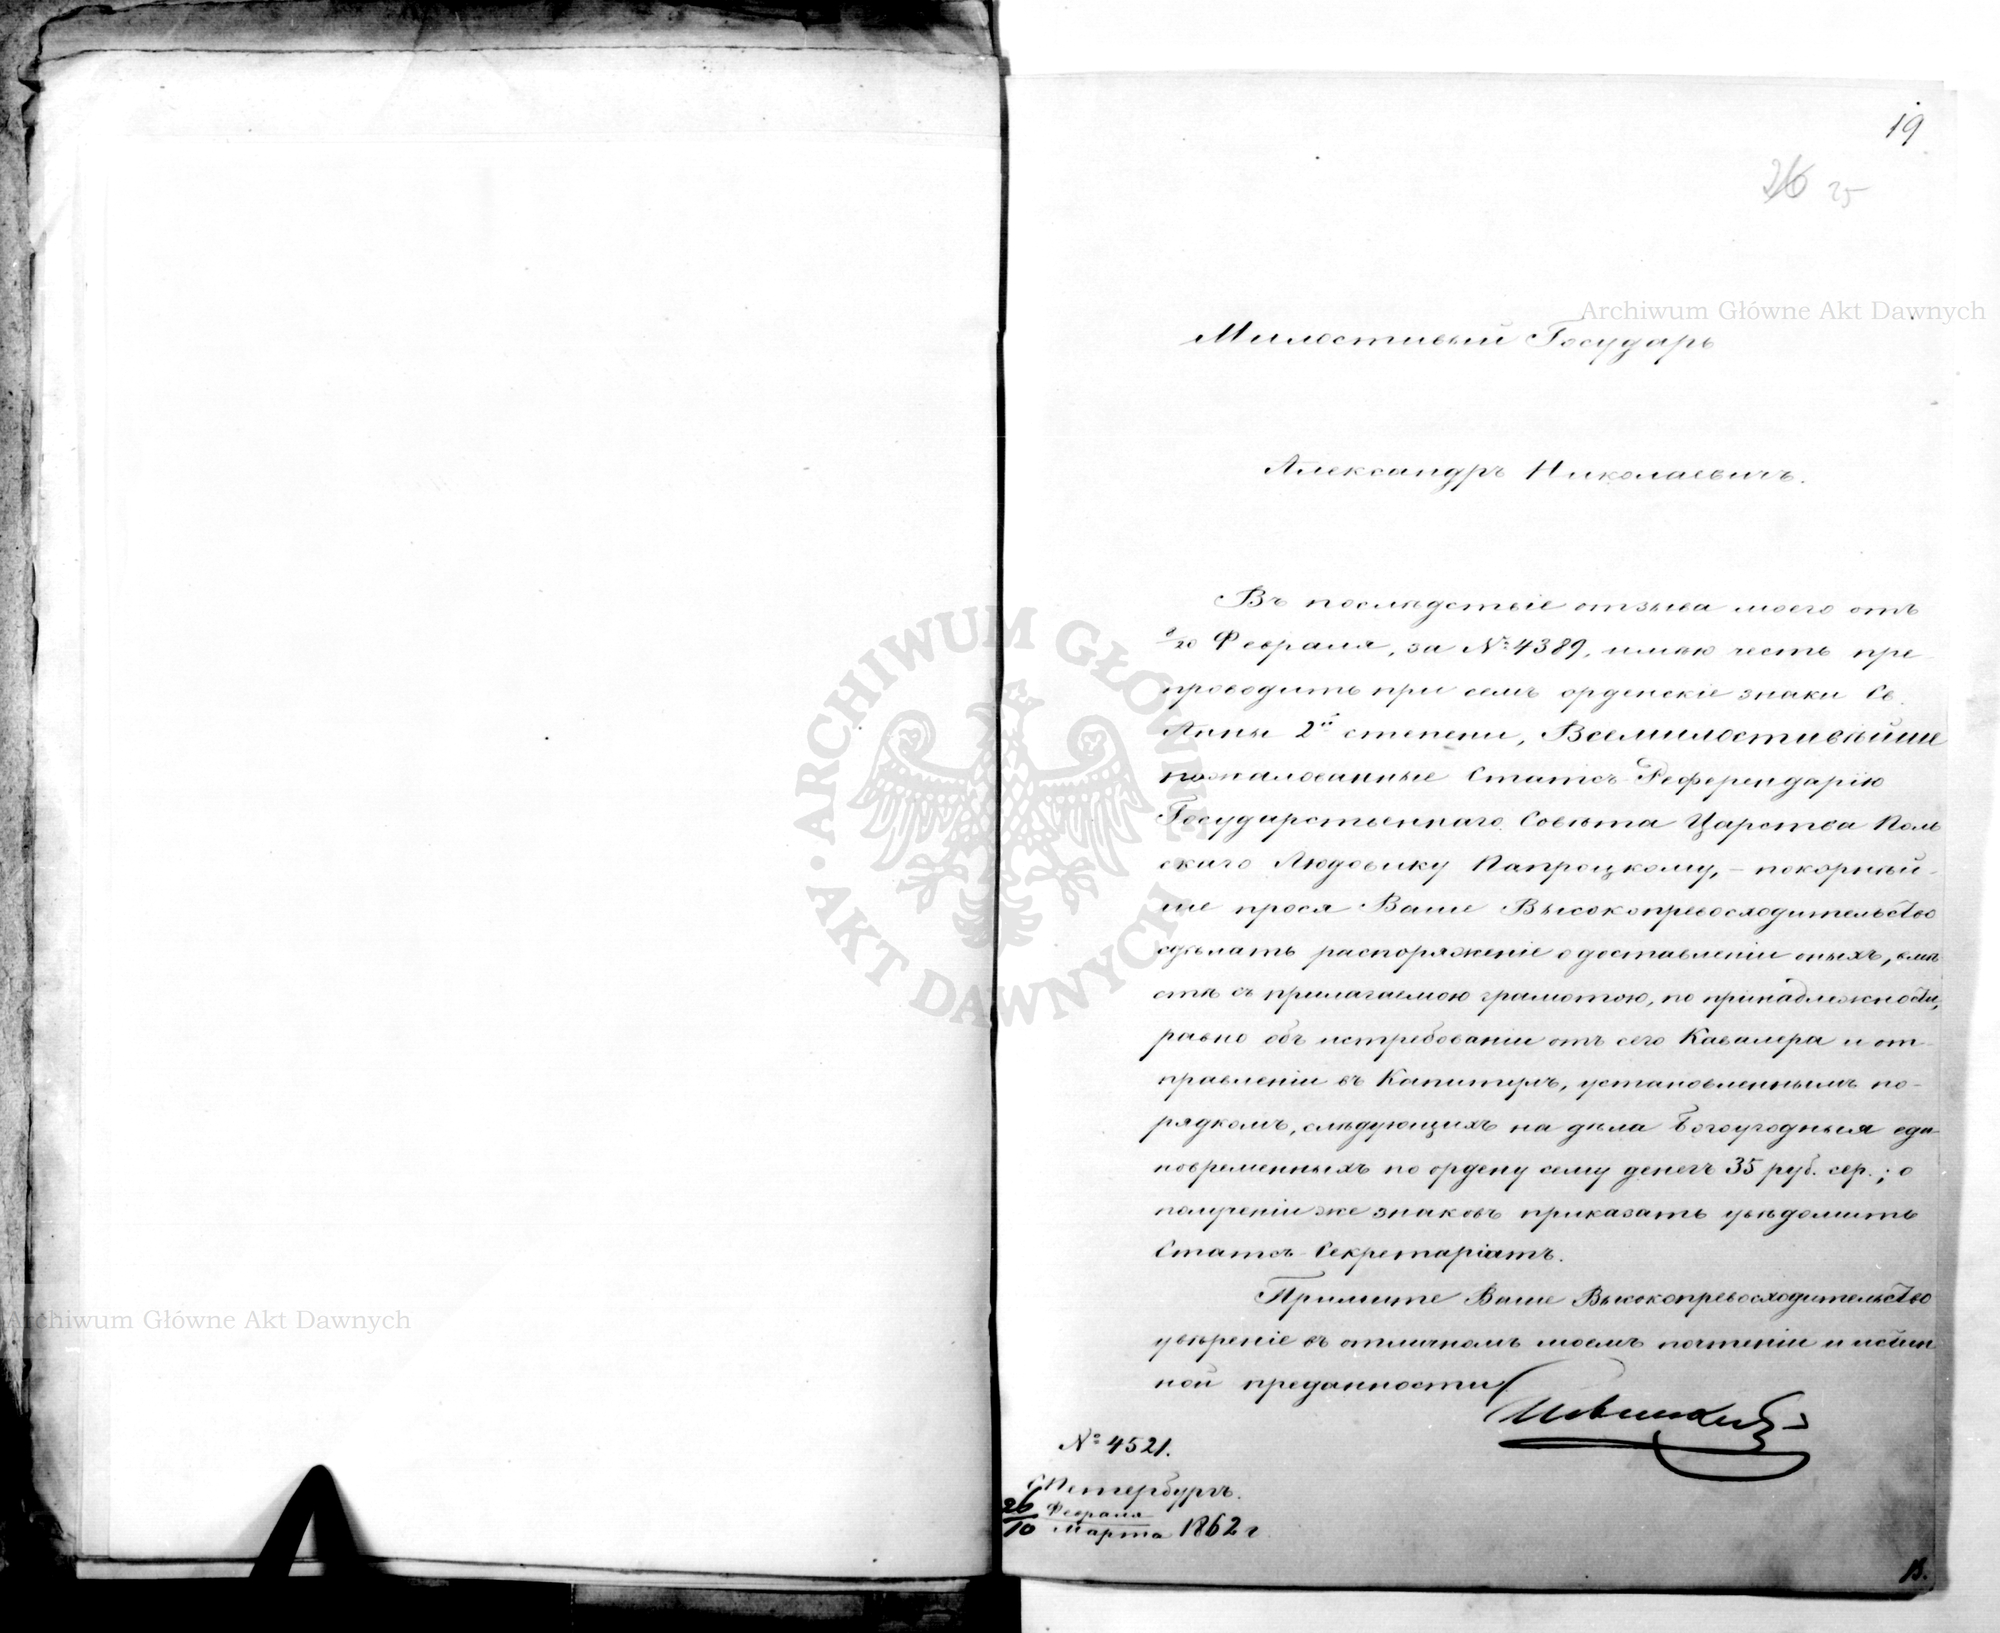 19
26 25
Archiwum Główne Akt Dawnych
Милостивый Государь
Александръ Николаевичъ.
Въ послѣдствіе отзыва моего отъ
8/20 Февраля, за № 4389, имѣю честь пре-
проводить при семъ орденскіе знаки Св.
Анны 2й степени, Всемилостивѣйше
пожалованные Статсъ-Референдарію
Государственнаго Совѣта Царства Поль
скаго Людовику Папроцкому, – покорнѣй-
ше прося Ваше Высокопревосходительство
сдѣлать распоряженіе о доставленіи оныхъ, вмѣ
стѣ съ прилагаемою грамотою, по принадлежности,
равно объ истребованіи отъ сего Кавалера и от-
правленіи въ Капитулъ, установленнымъ по-
рядкомъ, слѣдующихъ на дѣла Богоугодныя еди
новременныхъ по ордену сему денегъ 35 руб. сер.; о
полученіи же знаковъ приказать увѣдомить
Статсъ-Секретаріатъ.
Примите Ваше Высокопревосходительство
увѣреніе въ отличномъ моемъ почтеніи и истин
ной преданности
№ 4521.
С.Петербургъ.
26/10 Февраля/Марта 1862 г
В.
ARCHIWUM GŁÓWNE · AKT DAWNYCH ·
Archiwum Główne Akt Dawnych